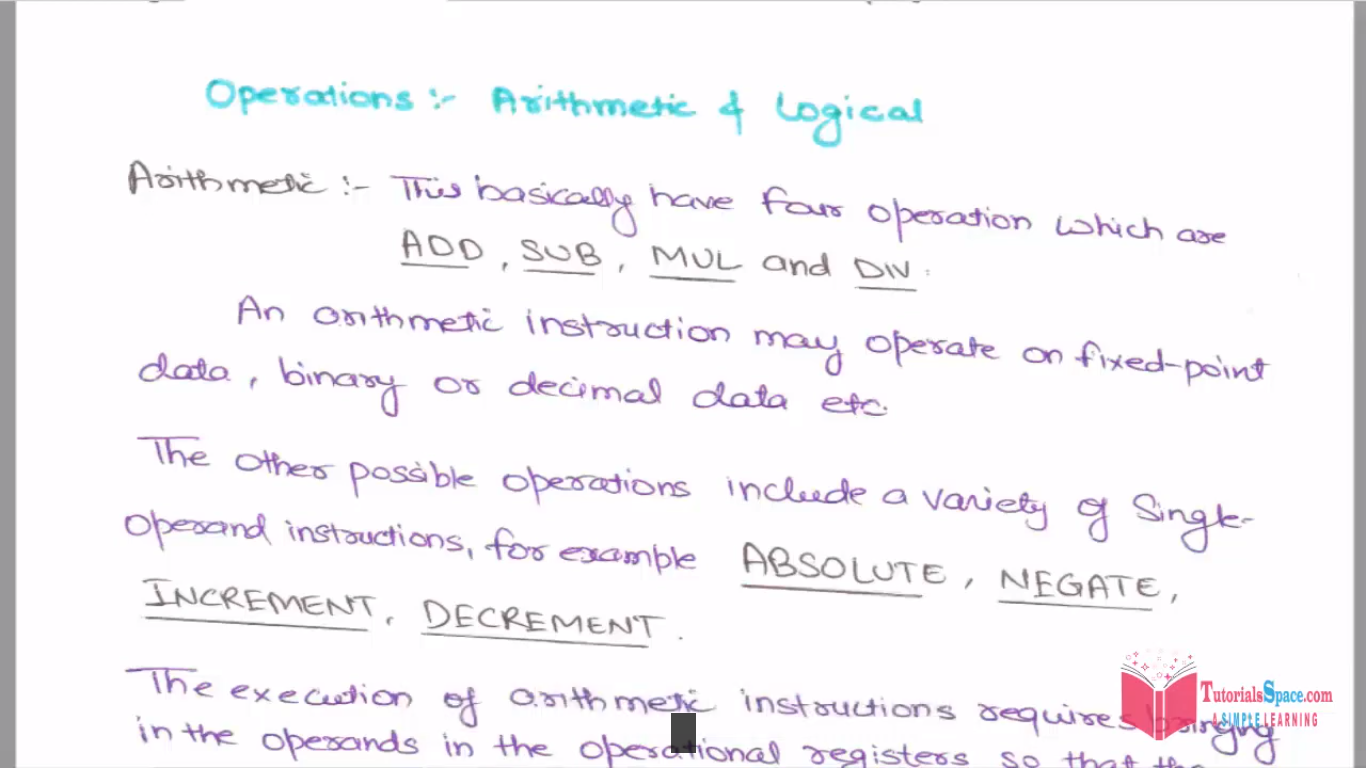 Operations :- Arithmetic & Logical
Arithmetic :- This basically have four operation which are
ADD, SUB, MUL and DIV.
An arithmetic instruction may operate on fixed-point
data, binary or decimal data etc.
The other possible operations include a variety of Single-
Operand instructions, for example ABSOLUTE, NEGATE,
INCREMENT, DECREMENT.
The execution of arithmetic instructions requires bringing
in the operands in the operational registers so that the
TutorialsSpace.com
A SIMPLE LEARNING